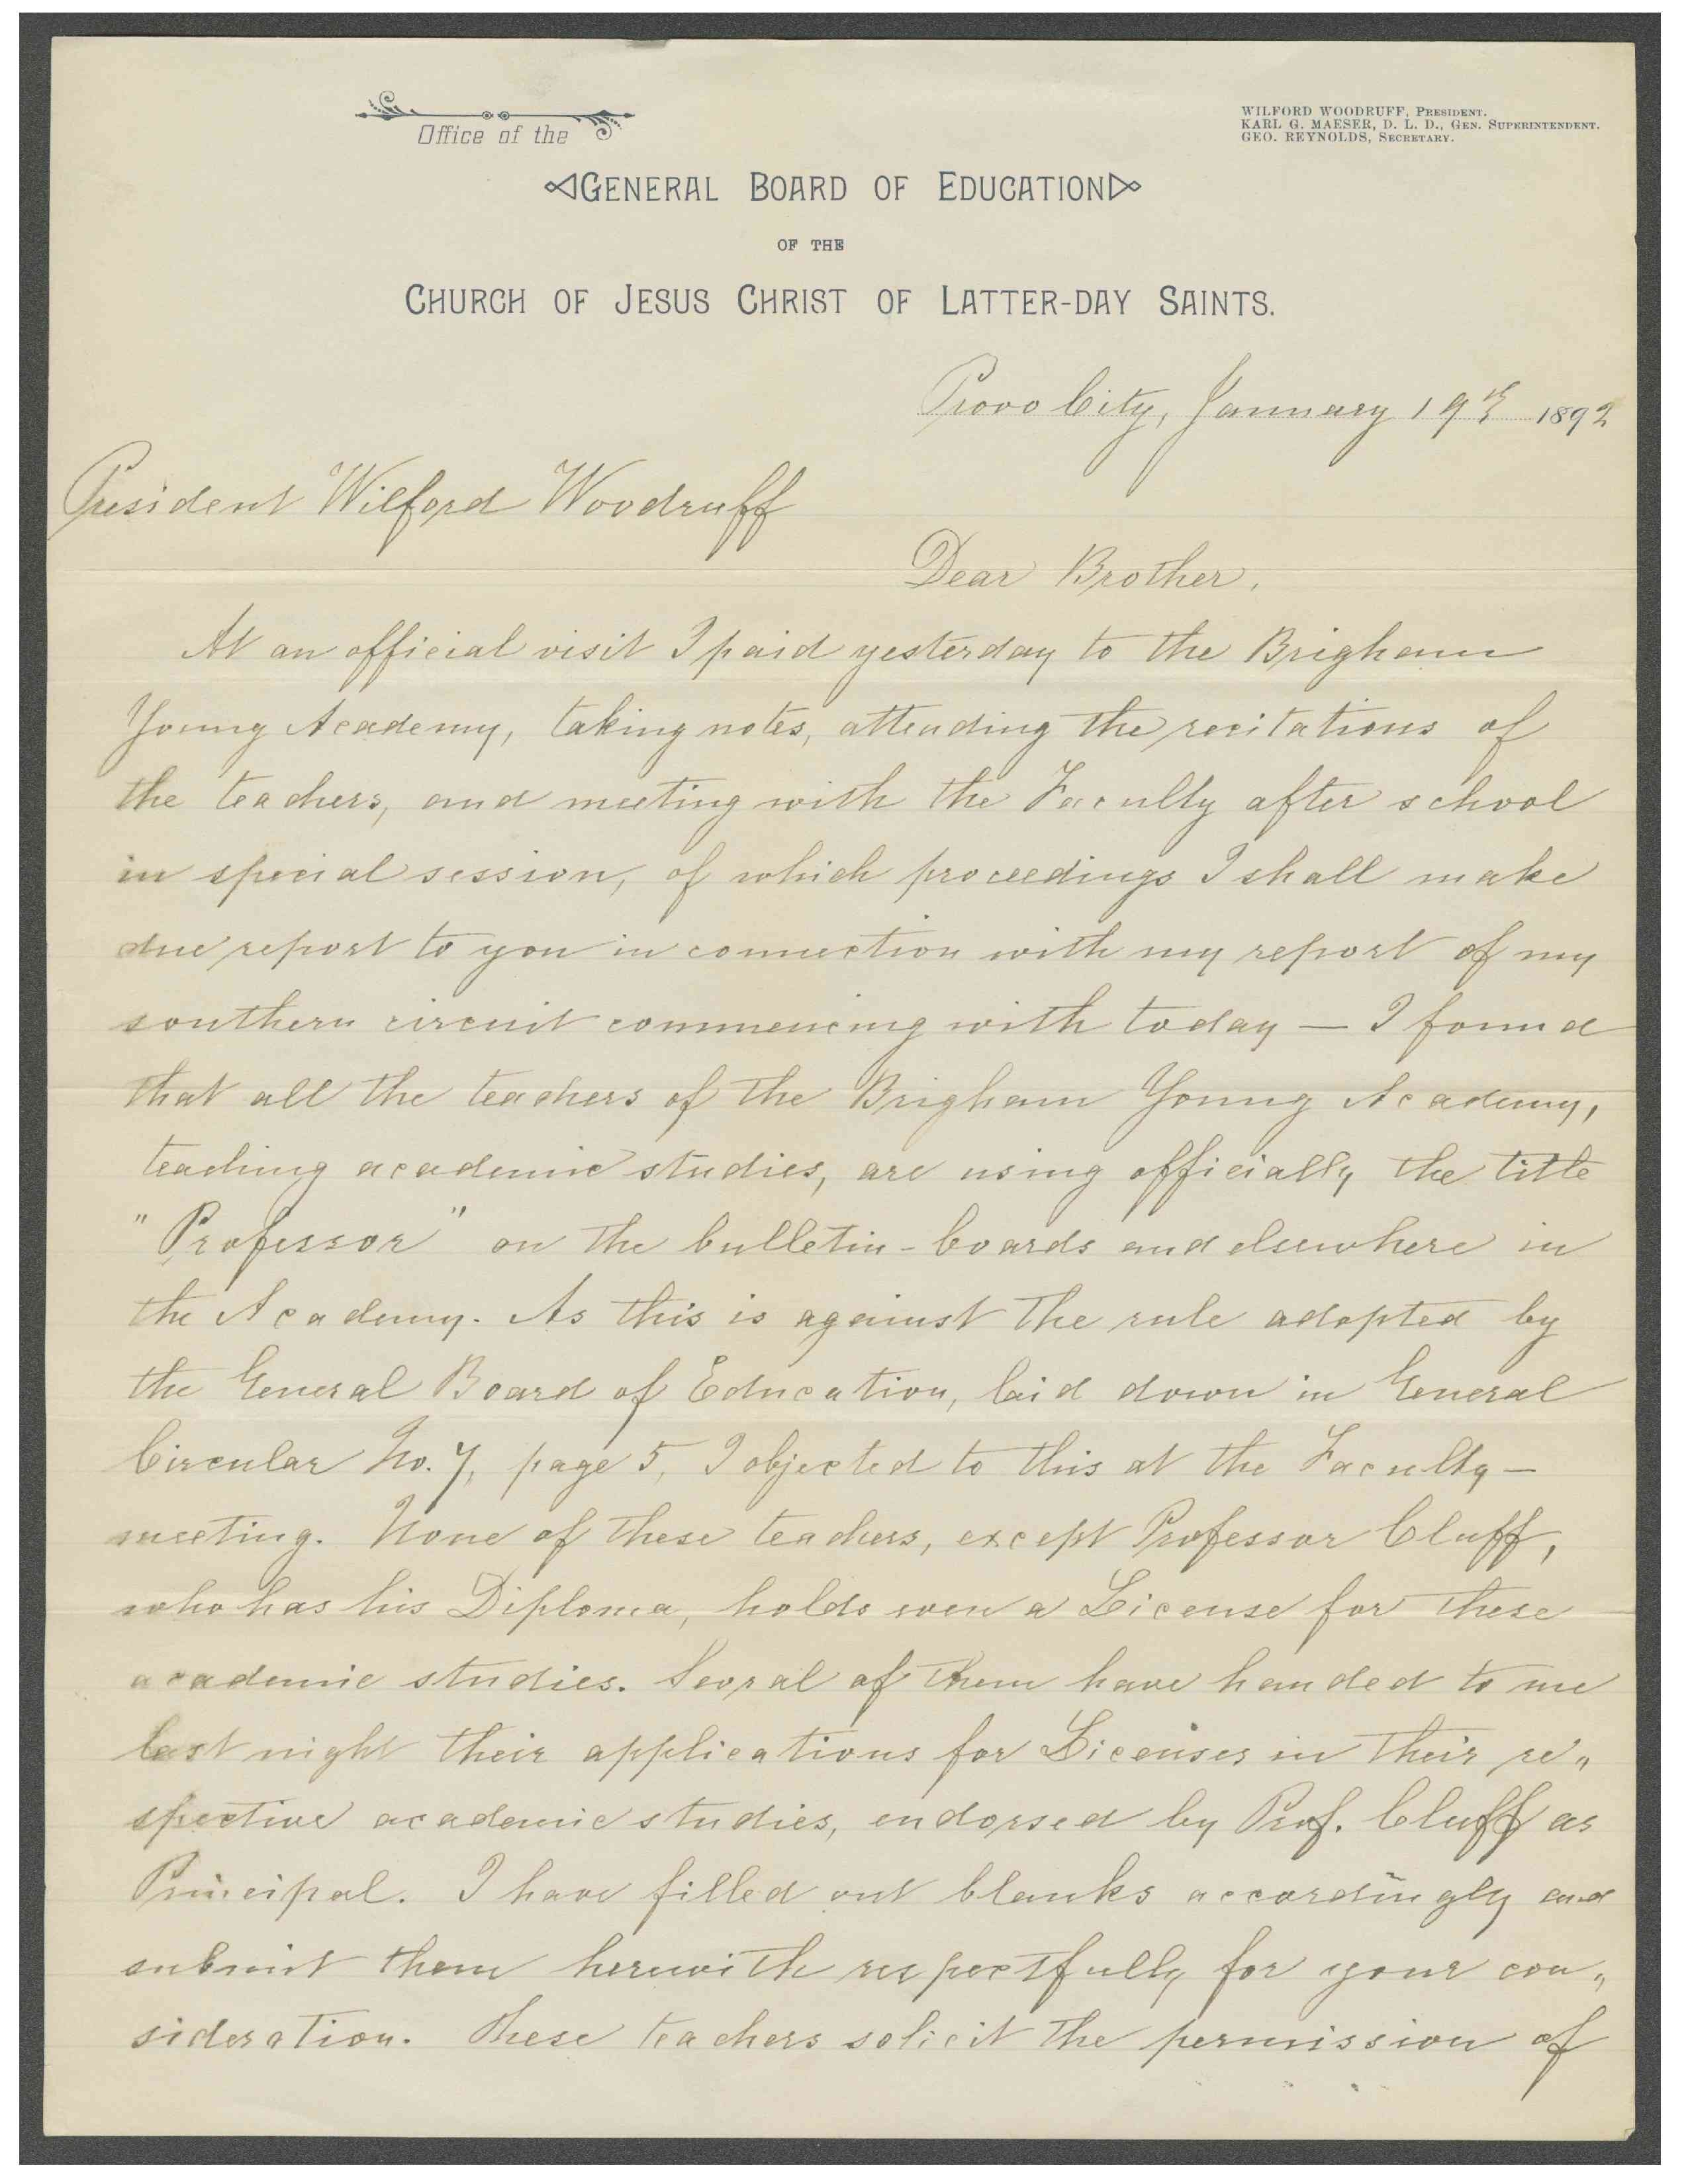 Office of the
WILFORD WOODRUFF, PRESIDENT.
KARL G. MAESER, D. L. D., GEN. SUPERINTENDENT.
GEO. REYNOLDS, SECRETARY.
GENERAL BOARD OF EDUCATION
OF THE
CHURCH OF JESUS CHRIST OF LATTER-DAY SAINTS.
Provo City, January 19th 1892
President Wilford Woodruff
Dear Brother,
At an official visit I paid yesterday to the Brigham
Young Academy, taking notes, attending the recitations of
the teachers, and meeting with the Faculty after school
in special session, of which proceedings I shall make
due report to you in connection with my report of my
southern circuit commencing with today — I found
that all the teachers of the Brigham Young Academy,
teaching academic studies, are using officially the title
"Professor" on the bulletin-boards and elsewhere in
the Academy. As this is against the rule adopted by
the General Board of Education, laid down in General
Circular No. 7, page 5, I objected to this at the Faculty-
meeting. None of these teachers, except Professor Cluff,
who has his Diploma, holds even a License for these
academic studies. Sevral of them have handed to me
last night their applications for Licenses in their re„
spective academic studies, endorsed by Prof. Cluff as
Principal. I have filled out blanks accordingly and
submit them herewith respectfully for your con„
sideration. These teachers solicit the permission of